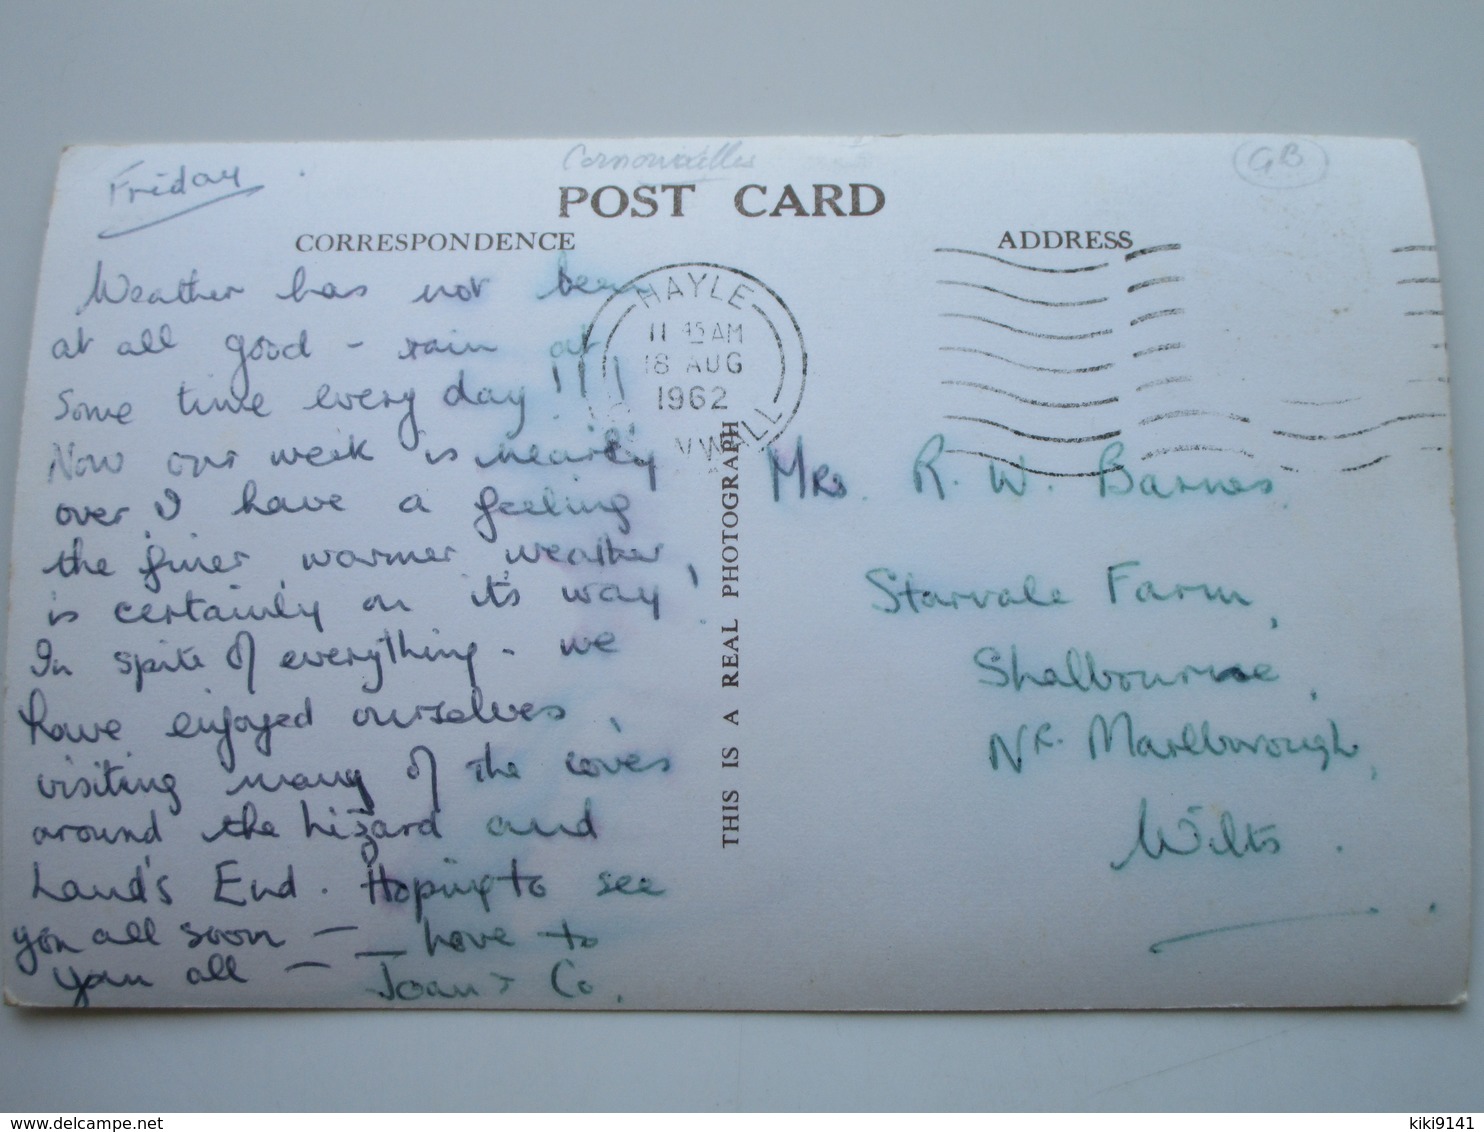 Friday
Cornouailles
GB
POST CARD
CORRESPONDENCE
ADDRESS
Weather has not been
at all good - rain at
some time every day!!!!
Now our week is nearly
over, I have a feeling
the finer, warmer weather,
is certainly on it's way!
In spite of everything - we
have enjoyed ourselves,
visiting many of the coves
around the Lizard and
Land's End. Hoping to see
you all soon — — love to
you all — Joan & Co.
HAYLE
11 45 AM
18 AUG
1962
THIS IS A REAL PHOTOGRAPH
Mrs. R. W. Barnes,
Starvale Farm,
Shalbourne,
Nr. Marlborough,
Wilts.
kiki9141